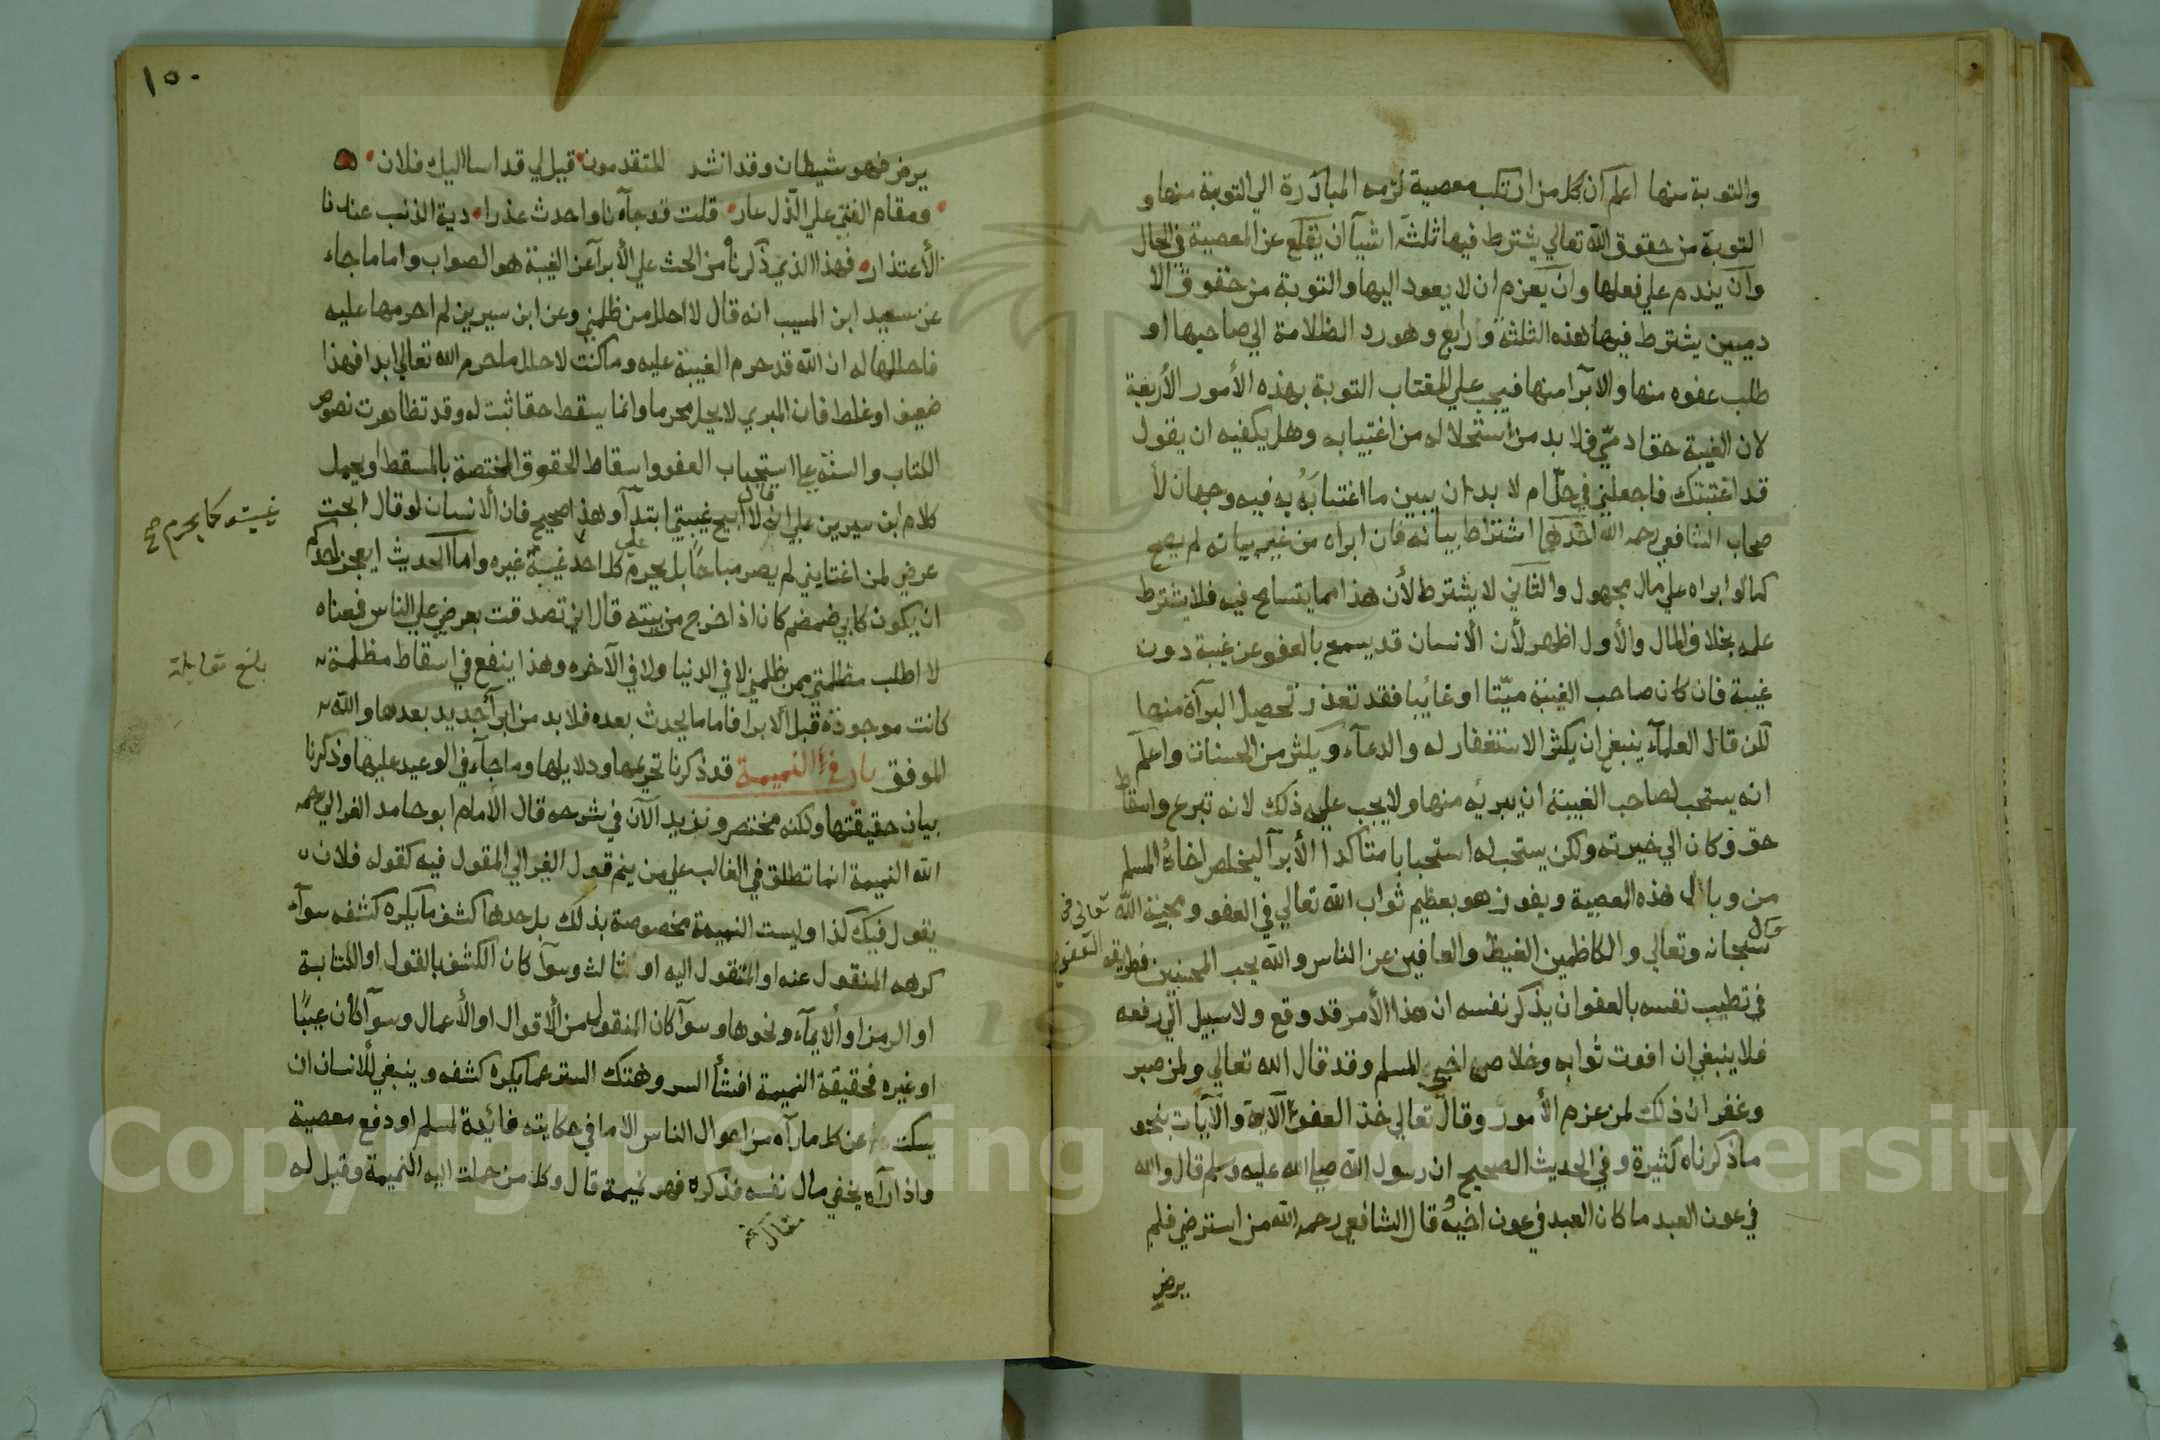 والتوبة منها اعلم ان كل من ارتكب معصية لزمه المبادرة الي التوبة منها و
التوبة من حقوق الله تعالي يشترط فيها ثلثة اشيآ ان يقلع عن المعصية في الحال
وان يندم علي فعلها وان يعزم ان لا يعود اليها والتوبة من حقوق الا
دميين يشترط فيها هذه الثلثة ورابع وهو رد الظلامة الي صاحبها او
طلب عفوه منها والابرآ منها فيجب علي المغتاب التوبة بهذه الأمور الأربعة
لان الغيبة حق ادمي فلا بد من استحلاله من اغتيابه وهل يكفيه ان يقول
قد اغتبتك فاجعلني في حل ام لا بد ان يبين ما اغتابه به فيه وجهان لأ
صحاب الشافعي رحمه الله احدهما اشتراط بيانه فان ابراه من غير بيانه لم يصح
كما لو ابراه علي مال مجهول والثاني لا يشترط لأن هذا مما يتسامح فيه فلا يشترط
علمه بخلاف المال والأول اظهر لأن الأنسان قد يسمح بالعفو عن غيبة دون
غيبة فان كان صاحب الغيبة ميتا او غايبا فقد تعذر تحصيل البرآة منها
لكن قال العلمآء ينبغي ان يكثر الاستغفار له والدعآء ويكثر من الحسنات واعلم
انه يستحب لصاحب الغيبة ان يبريه منها ولا يجب عليه ذلك لانه تبرع واسقاط
حق وكان الي خيرته ولكن يستحب له استحبابا متاكدا الأبرآ ليخلص اخاه المسلم
من وبال هذه المعصية ويفوز هو بعظيم ثواب الله تعالي في العفو ومحبة الله تعالى
قال سبحانه وتعالي والكاظمين الغيظ والعافين عن الناس والله يحب المحسنين فطريقه
في تطييب نفسه بالعفو ان يذكر نفسه ان هذا الأمر قد وقع ولا سبيل الي رفعه
فلا ينبغي ان افوت ثوابه وخلاص اخي المسلم وقد قال الله تعالي ولمن صبر
وغفر ان ذلك لمن عزم الأمور وقال تعالي خذ العفو الآية والآيات بنحو
ما ذكرناه كثيرة وفي الحديث الصحيح ان رسول الله صلي الله عليه وسلم قال والله
في عون العبد ما كان العبد في عون اخيه قال الشافعي رحمه الله من استرضي فلم
يرض
١٥٠
يرض فهو شيطان وقد انشد المتقدمون قيل لي قد اسا اليك فلان
ومقام الفتي علي الذل عار قلت قد جآءنا واحدث عذرا دية الذنب عندنا
الأعتذار فهذا الذي ذكرناه من الحث علي الأبرآ عن الغيبة هو الصواب واما ما جاء
عن سعيد ابن المسيب انه قال لا احلل من ظلمني وعن ابن سيرين لم احرمها عليه
فاحللها له ان الله قد حرم الغيبة عليه وما كنت لاحلل ما حرم الله تعالي ابدا فهذا
ضعيف او غلط فان المبري لا يحل محرما وانما يسقط حقا ثبت له وقد تظاهرت نصوص
الكتاب والسنة علي استحباب العفو واسقاط الحقوق المختصة بالمسقط او يحمل
كلام ابن سيرين علي اني لا ابيح غيبتي ابتدآ وهذا صحيح فان الأنسان لو قال ابحت
عرضي لمن اغتابني لم يصر مباحا بل يحرم علي كل احد غيبة غيره واما الحديث ايعجز احدكم
غيبته كما يحرم صح
ان يكون كابي ضمضم كان اذا خرج من بيته قال اني تصدقت بعرضي علي الناس فمعناه
لا اطلب مظلمتي ممن ظلمني لا في الدنيا ولا في الآخره وهذا ينفع في اسقاط مظلمة
بلغ مقابلة
كانت موجودة قبل الابرا فاما ما يحدث بعده فلا بد من ابرآ جديد بعدها والله
الموفق باب في النميمة قد ذكرنا تحريمها ودلايلها وما جآء في الوعيد عليها وذكرنا
بيان حقيقتها ولكنه مختصر ونزيد الآن في شرحه قال الأمام ابو حامد الغزالي رحمه
الله النميمة انما تطلق في الغالب علي من ينم قول الغير الي المقول فيه كقوله فلان
يقول فيك كذا وليست النميمة مخصوصة بذلك بل حدها كشف ما يكره كشفه سوآء
كرهه المنقول عنه او المنقول اليه او ثالث وسوآ كان الكشف بالقول او الكتابة
او الرمز او الايمآء ونحوها وسوآ كان المنقول من الأقوال او الأعمال وسوآ كان عيبا
او غيره فحقيقة النميمة افشآ السر وهتك الستر عما يكره كشفه وينبغي للأنسان ان
يسكت عن كل ما رآه من احوال الناس الا ما في حكايته فائدة لمسلم او دفع معصية
واذا رآه يخفي مال نفسه فذكره فهو نميمة قال وكل من حملت اليه النميمة وقيل له
قال
Copyright © King Saud University